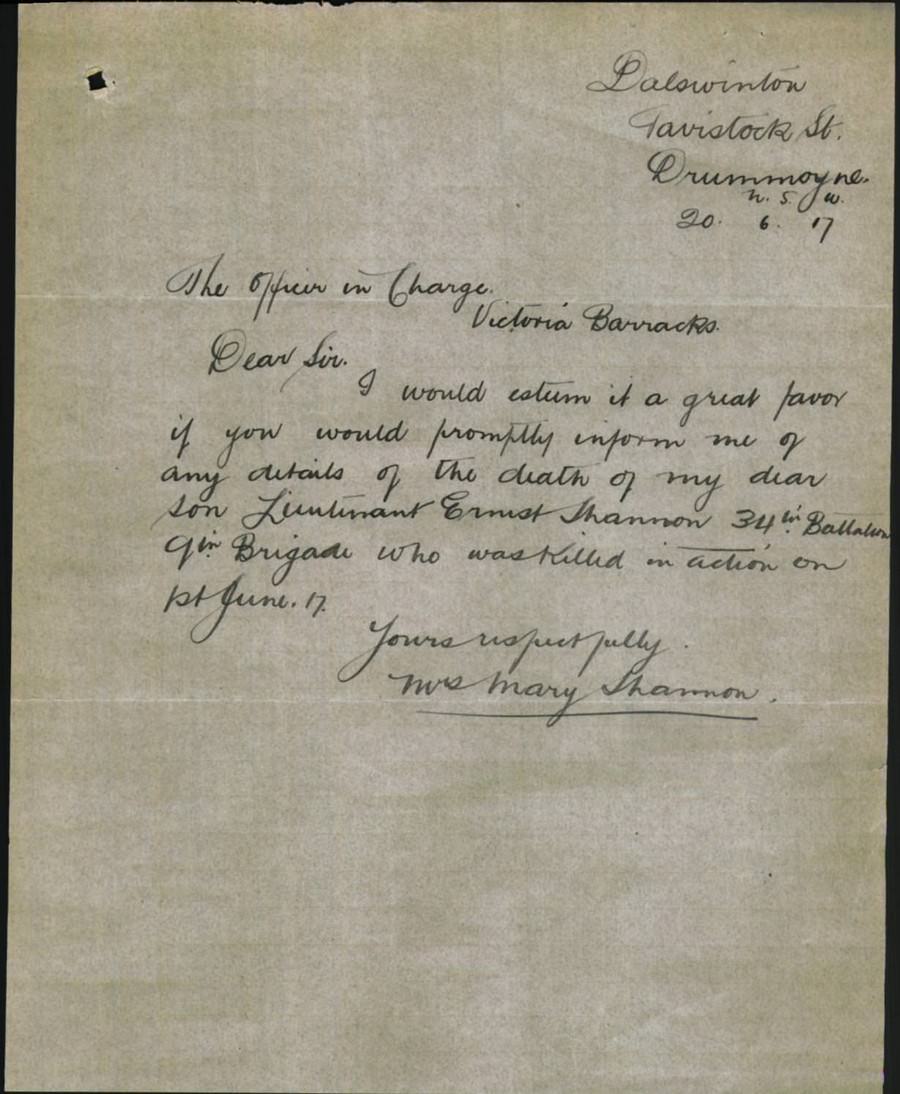 Dalswinton
Tavistock St.
Drummoyne.
N. S. W.
20. 6. 17
The Officer in Charge.
Victoria Barracks.
Dear Sir.
I would esteem it a great favor
if you would promptly inform me of
any details of the death of my dear
son Lieutenant Ernest Shannon 34th Battalion
9th Brigade who was killed in action on
1st June. 17.
Yours respectfully.
Mrs Mary Shannon.